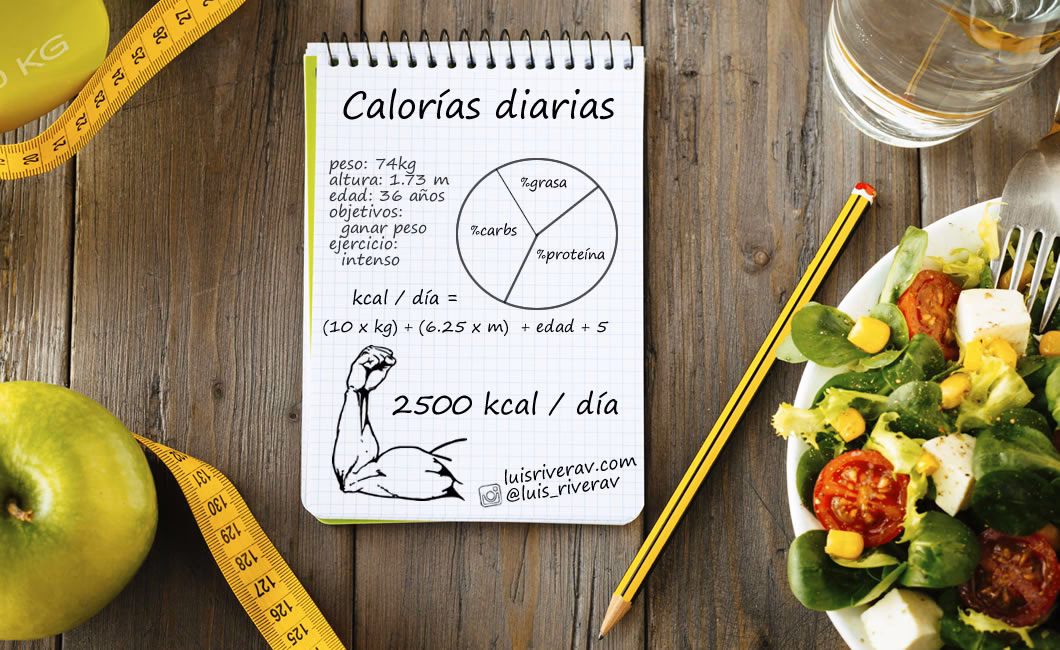 KG
27
26
25
24
23
22
20
Calorías diarias
peso: 74kg
altura: 1.73 m
edad: 36 años
objetivos:
ganar peso
ejercicio:
intenso
%grasa
%carbs
%proteína
kcal / día =
(10 x kg) + (6.25 x m) + edad + 5
2500 kcal / día
luisriverav.com
@luis_riverav
131
130
129
128
127
126
125